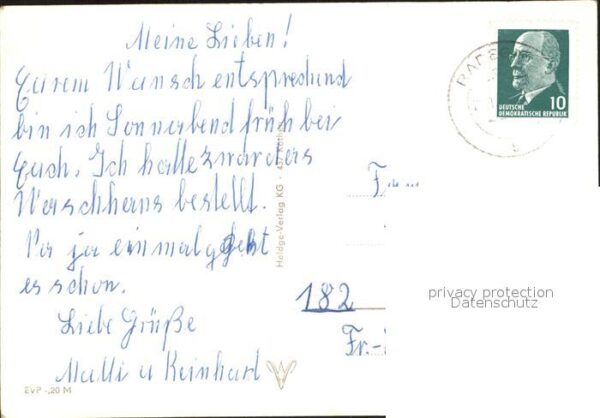 Meine Lieben!
Eurem Wunsch entsprechend
bin ich Sonnabend früh bei
Euch. Ich hatte zwar
Waschhaus bestellt.
Na ja einmal geht
es schon.
Liebe Grüße
u Reinhard
EVP -,20 M
Heldge-Verlag KG
DEUTSCHE
DEMOKRATISCHE REPUBLIK
10
182
Fr.-
privacy protection
Datenschutz